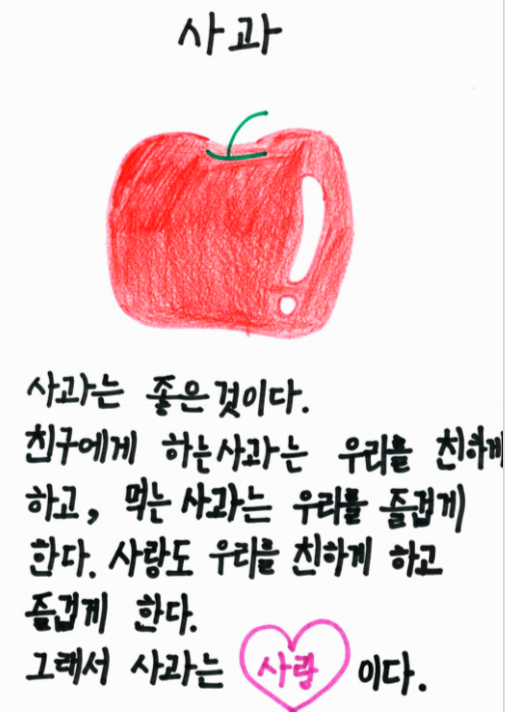 사과
사과는 좋은것이다.
친구에게 하는사과는 우리를 친하게
하고, 먹는 사과는 우리를 즐겁게
한다. 사랑도 우리를 친하게 하고
즐겁게 한다.
그래서 사과는 사랑 이다.